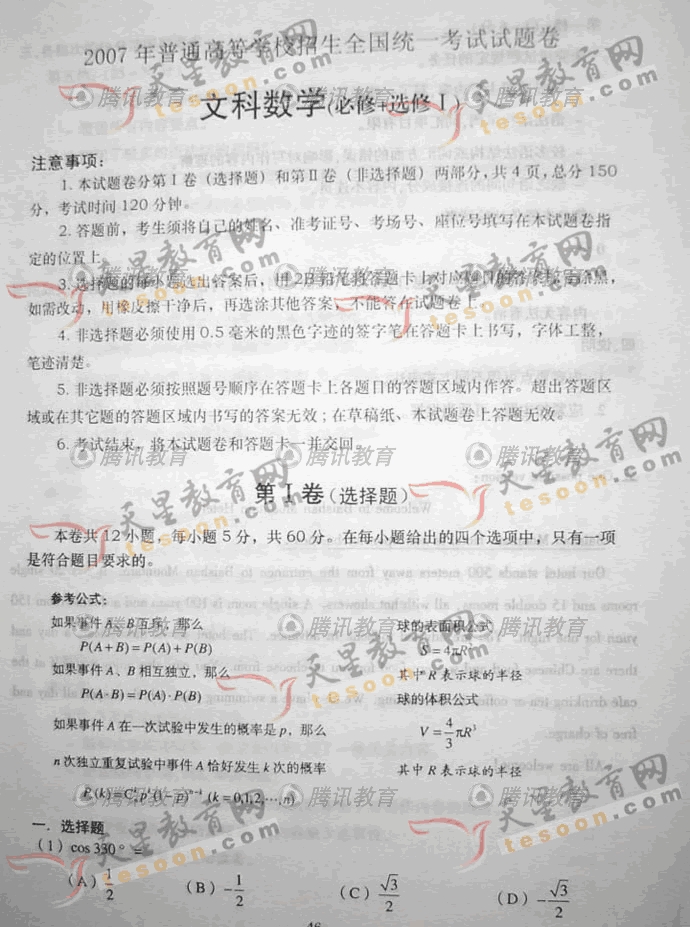 2007 年普通高等学校招生全国统一考试试题卷
文科数学(必修+选修 I)
注意事项:
1. 本试题卷分第 I 卷（选择题）和第 II 卷（非选择题）两部分，共 4 页，总分 150
分，考试时间 120 分钟。
2. 答题前，考生须将自己的姓名、准考证号、考场号、座位号填写在本试题卷指
定的位置上。
3. 选择题的每小题选出答案后，用 2B 铅笔将答题卡上对应题目的答案标号涂黑，
如需改动，用橡皮擦干净后，再选涂其他答案，不能答在试题卷上。
4. 非选择题必须使用 0.5 毫米的黑色字迹的签字笔在答题卡上书写，字体工整，
笔迹清楚。
5. 非选择题必须按照题号顺序在答题卡上各题目的答题区域内作答。超出答题区
域或在其它题的答题区域内书写的答案无效；在草稿纸、本试题卷上答题无效。
6. 考试结束，将本试题卷和答题卡一并交回。
第 I 卷（选择题）
本卷共 12 小题，每小题 5 分，共 60 分。在每小题给出的四个选项中，只有一项
是符合题目要求的。
参考公式:
如果事件 A、B 互斥，那么 球的表面积公式
P(A+B)=P(A)+P(B) S=4πR²
如果事件 A、B 相互独立，那么 其中 R 表示球的半径
P(A·B)=P(A)·P(B) 球的体积公式
如果事件 A 在一次试验中发生的概率是 p，那么 V=4/3 πR³
n 次独立重复试验中事件 A 恰好发生 k 次的概率 其中 R 表示球的半径
Pₙ(k)=Cₙᵏpᵏ(1-p)ⁿ⁻ᵏ (k=0,1,2,…,n)
一．选择题
(1) cos330°=
(A) 1/2 (B) -1/2 (C) √3/2 (D) -√3/2
46
天星教育网
tesoon.com
腾讯教育